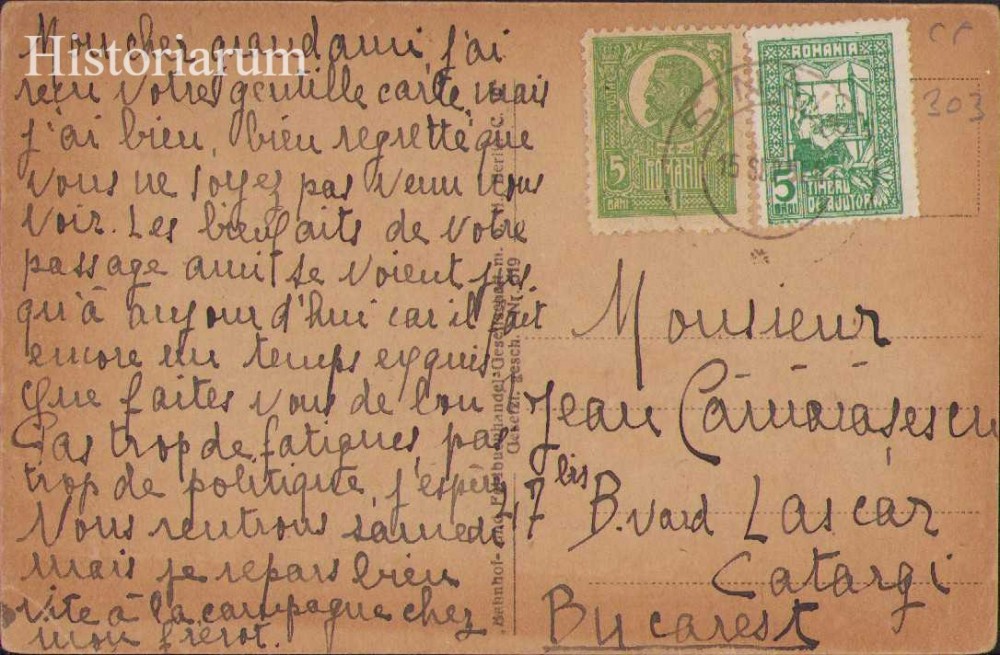 Historiarum
Mon cher grand ami, j'ai
reçu votre gentille carte, mais
j'ai bien, bien regretté que
vous ne soyez pas venu nous
voir. Les bienfaits de votre
passage ami se voient jus
qu'à aujourd'hui car il fait
encore un temps exquis.
Que faites vous de bon
Pas trop de fatigues, pas
trop de politique, j'espère
Nous rentrons samedi
mais je repars bien
vite à la campagne chez
mon frérot.
Bahnhof- und Feldbuchhandel-Gesellschaft m.
Gesetzl. gesch. Nr. 619
CP
303
5
BANI
ROMANIA
ROMANIA
5
BANI
TIMBRU
DE AJUTOR
15 SEP
Monsieur
Jean Cămărășescu
47 bis B.vard Lascăr
Catargi
Bucarest